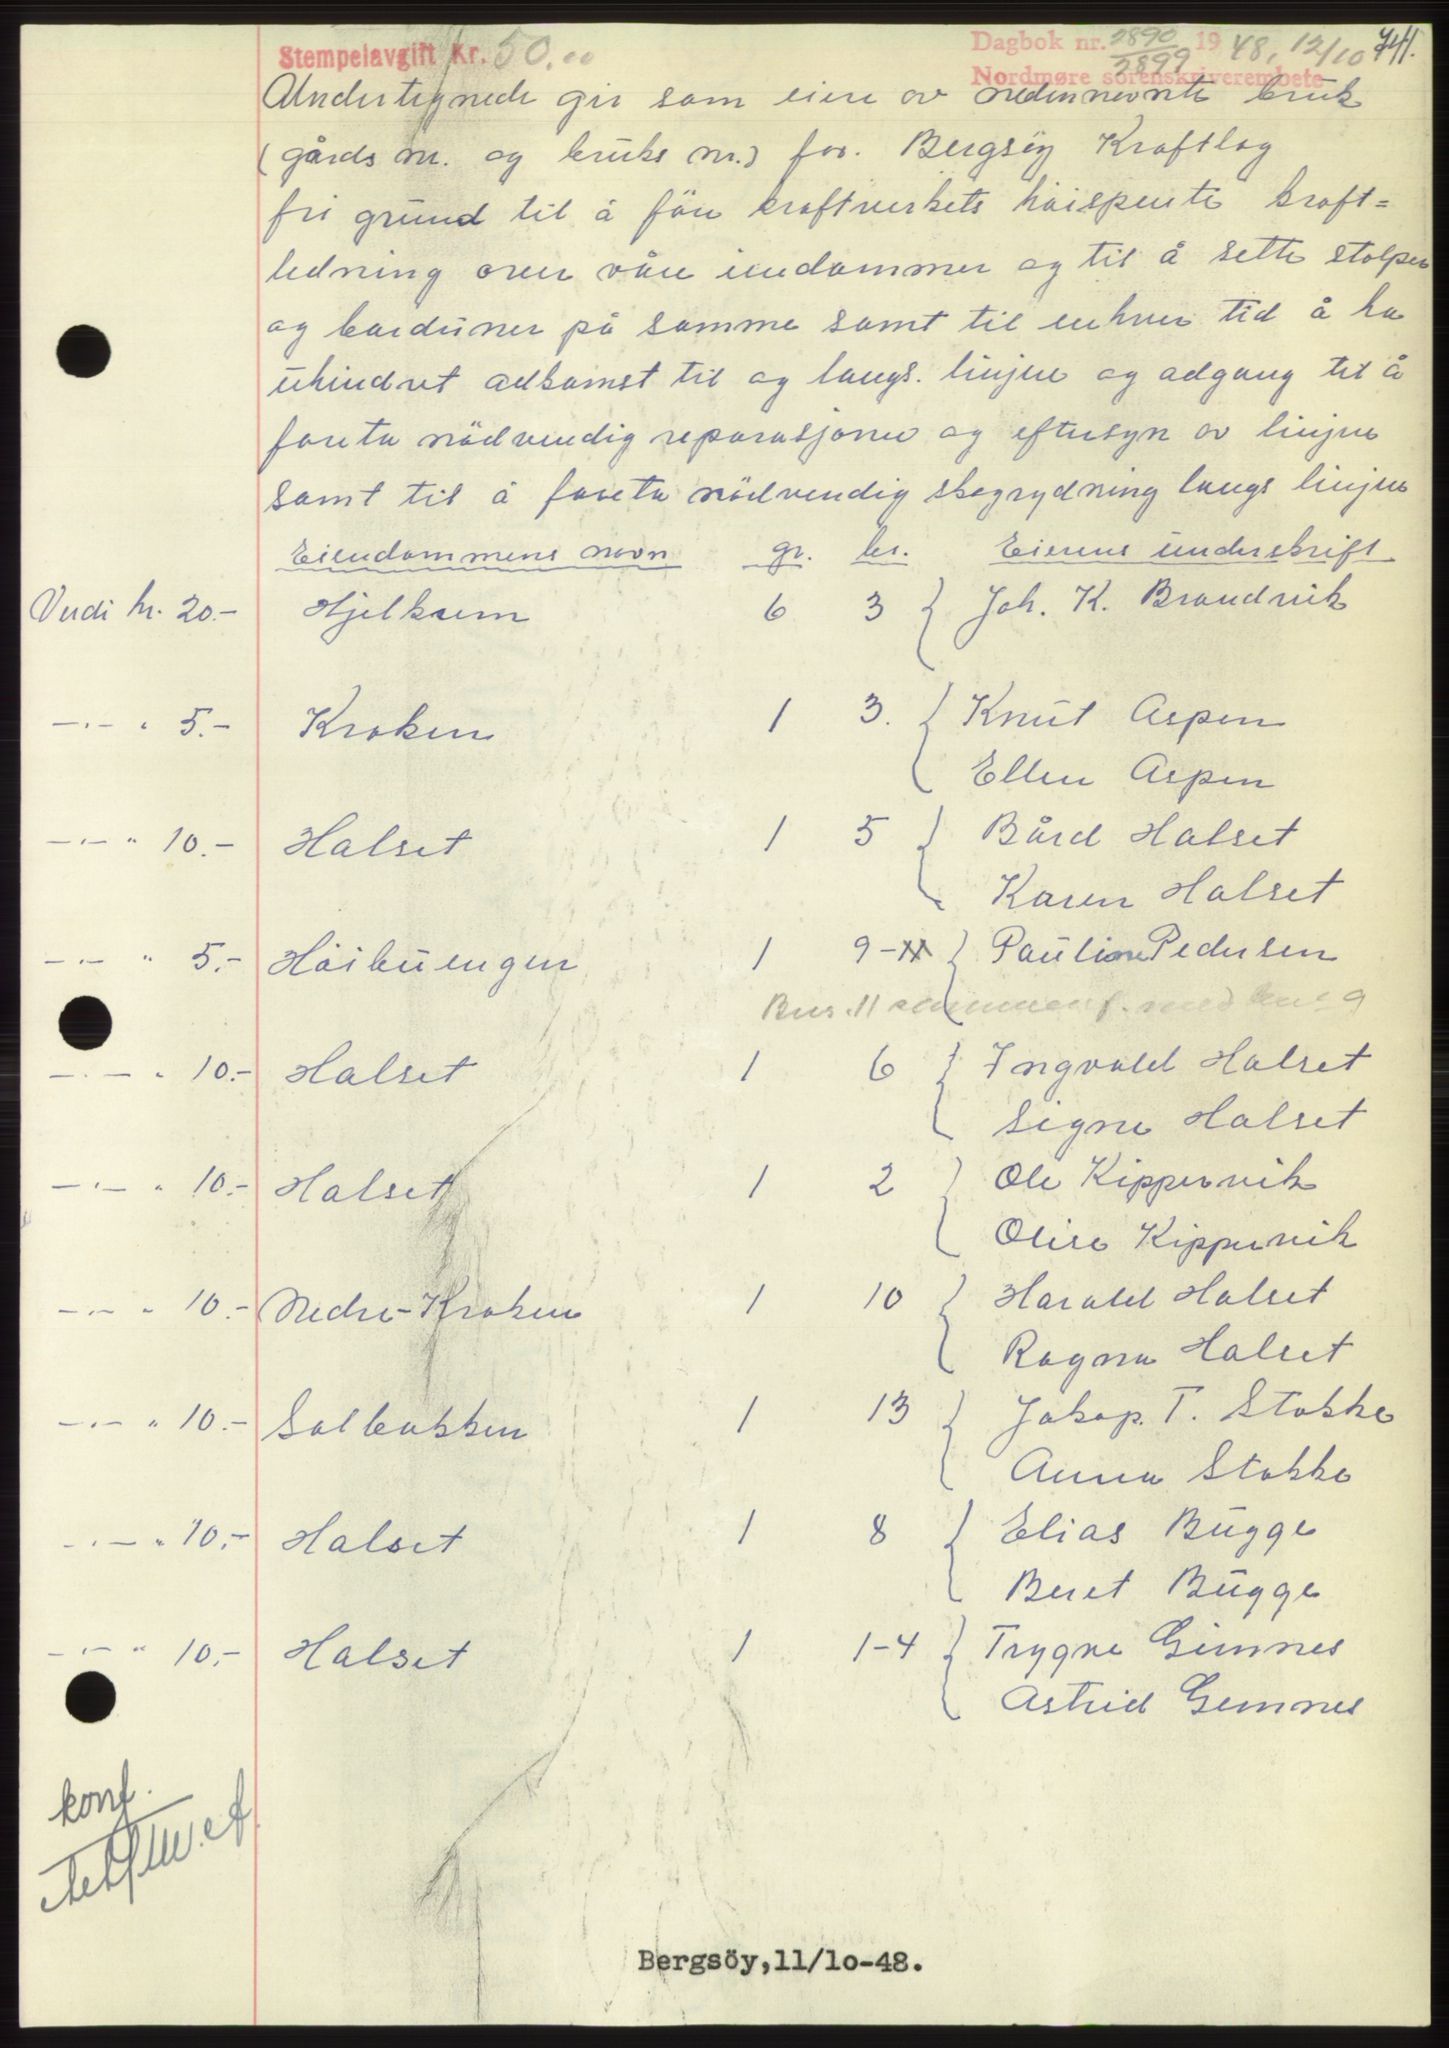 Stempelavgift Kr. 50.00
Dagbok nr. 2890/2899 19 48, 12/10 741.
Nordmøre sorenskriverembete
Undertegnede gir som eiere av nedennevnte bruk
(gårds nr. og bruks nr.) for. Bergsöy Kraftlag
fri grund til å före kraftverkets höispente kraft=
ledning over våre eiendommer og til å sette stolper
og barduner på samme samt til enhver tid å ha
uhindret adkomst til og langs. linjen og adgang til å
foreta nödvendig reparasjoner og eftersyn av linjen
samt til å foreta nödvendig skogrydning langs linjen
Eiendommens navn gr. br. Eierens underskrift
Verdi kr. 20.- Hjelkrem 6 3 { Joh. K. Brandvik
-"- " 5.- Kroken 1 3. { Knut Aspen
Ellen Aspen
-"- " 10.- Halset 1 5 { Bård Halset
Karen Halset
-"- " 5.- Höibuengen 1 9-11 } Pauline Pedersen
Bnr. 11 sammenf. med bnr 9
-"- " 10.- Halset 1 6 { Ingvald Halset
Signe Halset
-"- " 10.- Halset 1 2 } Ole Kippervik
Olise Kippervik
-"- " 10.- Nedre-Kroken 1 10 { Harald Halset
Ragna Halset
-"- " 10.- Solbakken 1 13 { Jakop. T. Stokke
Anna Stokke
-"- " 10.- Halset 1 8 { Elias Bugge
Beret Bugge
-"- " 10.- Halset 1 1-4 { Trygve Gimnes
Astrid Gimnes
konf.
Bergsöy,11/10-48.